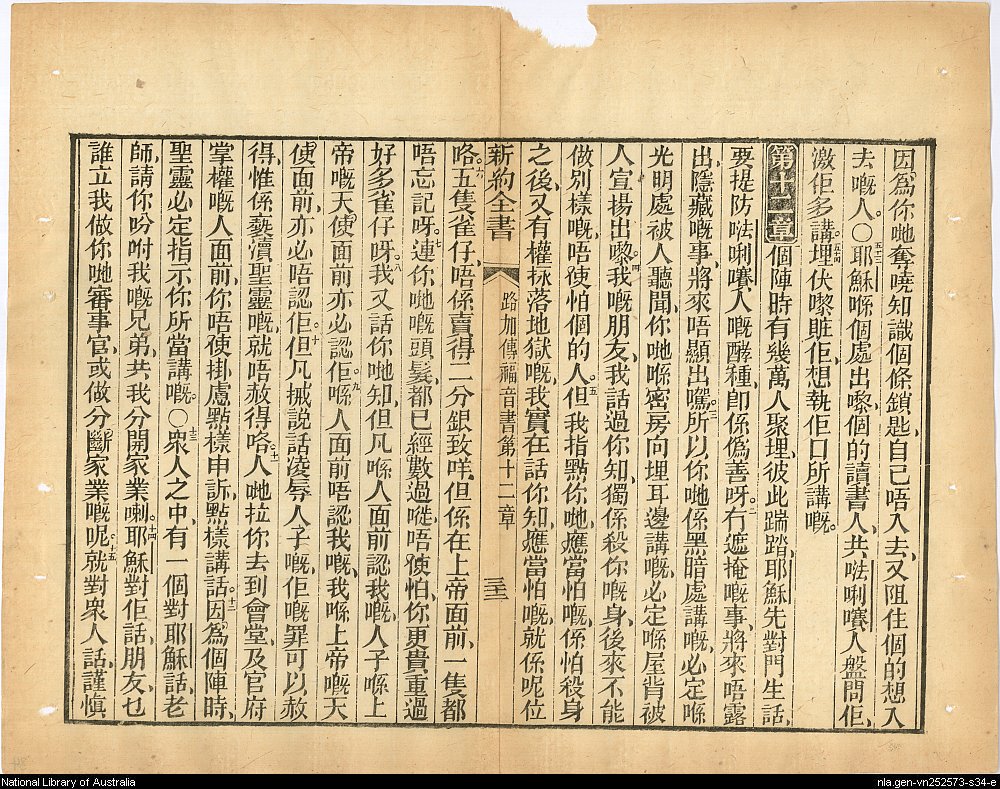 因爲你哋奪曉知識個條鎖匙、自己唔入去、又阻住個的想入
去嘅人。○五十三耶穌喺個處出嚟、個的讀書人、共𠵽唎㘔人盤問佢、
激佢多講。五十四埋伏嚟賍佢、想執佢口所講嘅。
第十二章個陣時有幾萬人聚埋、彼此踹踏、耶穌先對門生話、
要提防𠵽唎㘔人嘅酵種、卽係僞善呀。二冇遮掩嘅事、將來唔露
出、隱藏嘅事、將來唔顯出嘅。三所以你哋係黑暗處講嘅、必定喺
光明處被人聽聞、你哋喺密房向埋耳邊講嘅、必定喺屋背被
人宣揚出嚟。四我嘅朋友、我話過你知、獨係殺你嘅身、後來不能
做別樣嘅、唔使怕個的人。五但我指點你哋應當怕嘅、係怕殺身
之後、又有權𢫏落地獄嘅、我實在話你知、應當怕嘅、就係呢位
新約全書 路加傳福音書第十二章 三十三
咯。六五隻雀仔、唔係賣得二分銀致咩、但係在上帝面前、一隻都
唔忘記呀。七連你哋嘅頭髮都已經數過嘥、唔使怕、你更貴重過
好多雀仔呀。八我又話你哋知、但凡喺人面前認我嘅、人子喺上
帝嘅天使面前亦必認佢。九喺人面前唔認我嘅、我喺上帝嘅天
使面前、亦必唔認佢。十但凡搣說話凌辱人子嘅、佢嘅罪可以赦
得、惟係褻瀆聖靈嘅、就唔赦得咯。十一人哋拉你去到會堂、及官府
掌權嘅人面前、你唔使掛慮點樣申訴、點樣講話。十二因爲個陣時、
聖靈必定指示你所當講嘅。○十三衆人之中、有一個對耶穌話、老
師、請你吩咐我嘅兄弟、共我分開家業喇。十四耶穌對佢話、朋友、乜
誰立我做你哋審事官、或做分斷家業嘅呢。十五就對衆人話、謹愼
National Library of Australia
nla.gen-vn252573-s34-e